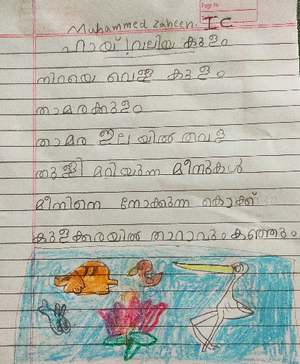 Page No
Muhammed Zaheen 1C
ഹായ് ! വലിയ കുളം
നിറയെ വെള്ള കുളം
താമരക്കുളം
താമര ഇലയിൽ തവള
തുള്ളി മറിയുന്ന മീനുകൾ
മീനിനെ നോക്കുന്ന കൊക്ക്
കുളക്കരയിൽ താറാവും കുഞ്ഞും